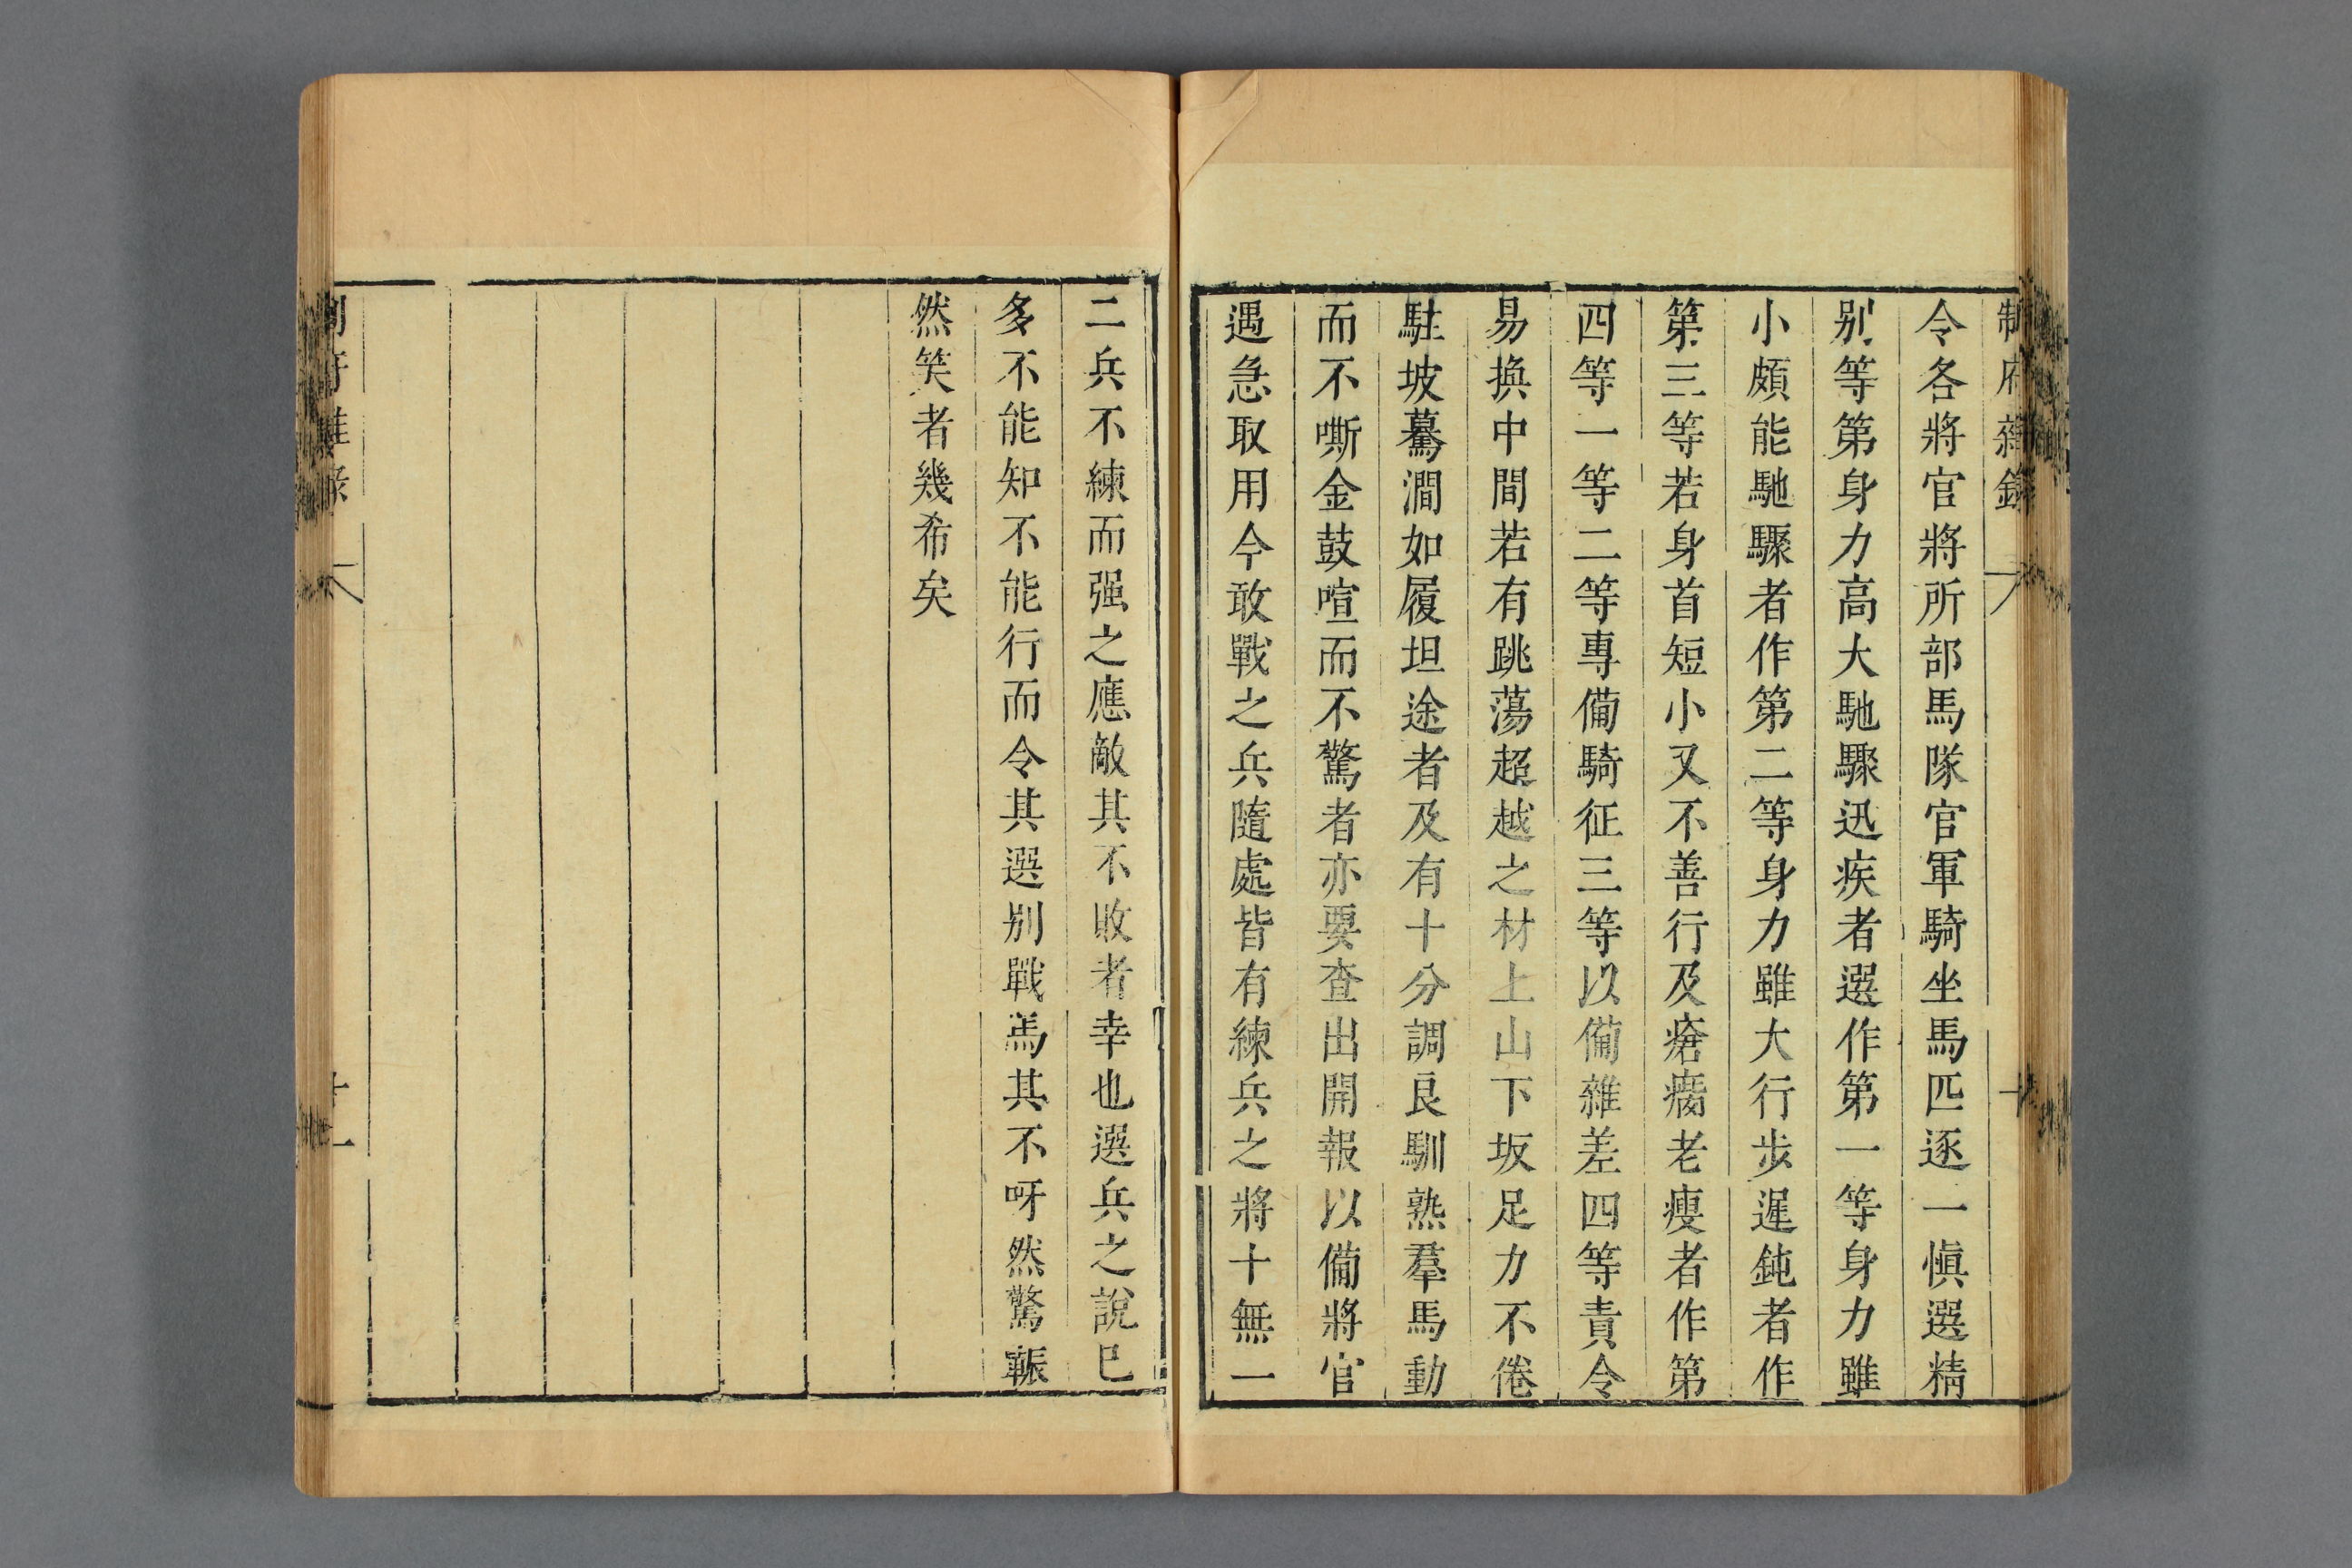 制府雜錄
令各將官將所部馬隊官軍騎坐馬匹逐一愼選精
别等第身力高大馳驟迅疾者選作第一等身力雖
小頗能馳驟者作第二等身力雖大行步遲鈍者作
第三等若身首短小又不善行及瘡癘老瘦者作第
四等一等二等專備騎征三等以備雜差四等責令
易換中間若有跳蕩超越之材上山下坂足力不倦
駐坡驀澗如履坦途者及有十分調良馴熟羣馬動
而不嘶金鼓喧而不驚者亦要查出開報以備將官
遇急取用今敢戰之兵隨處皆有練兵之將十無一
二兵不練而强之應敵其不敗者幸也選兵之說巳
多不能知不能行而令其選别戰馬其不呀然驚囅
然笑者幾希矣